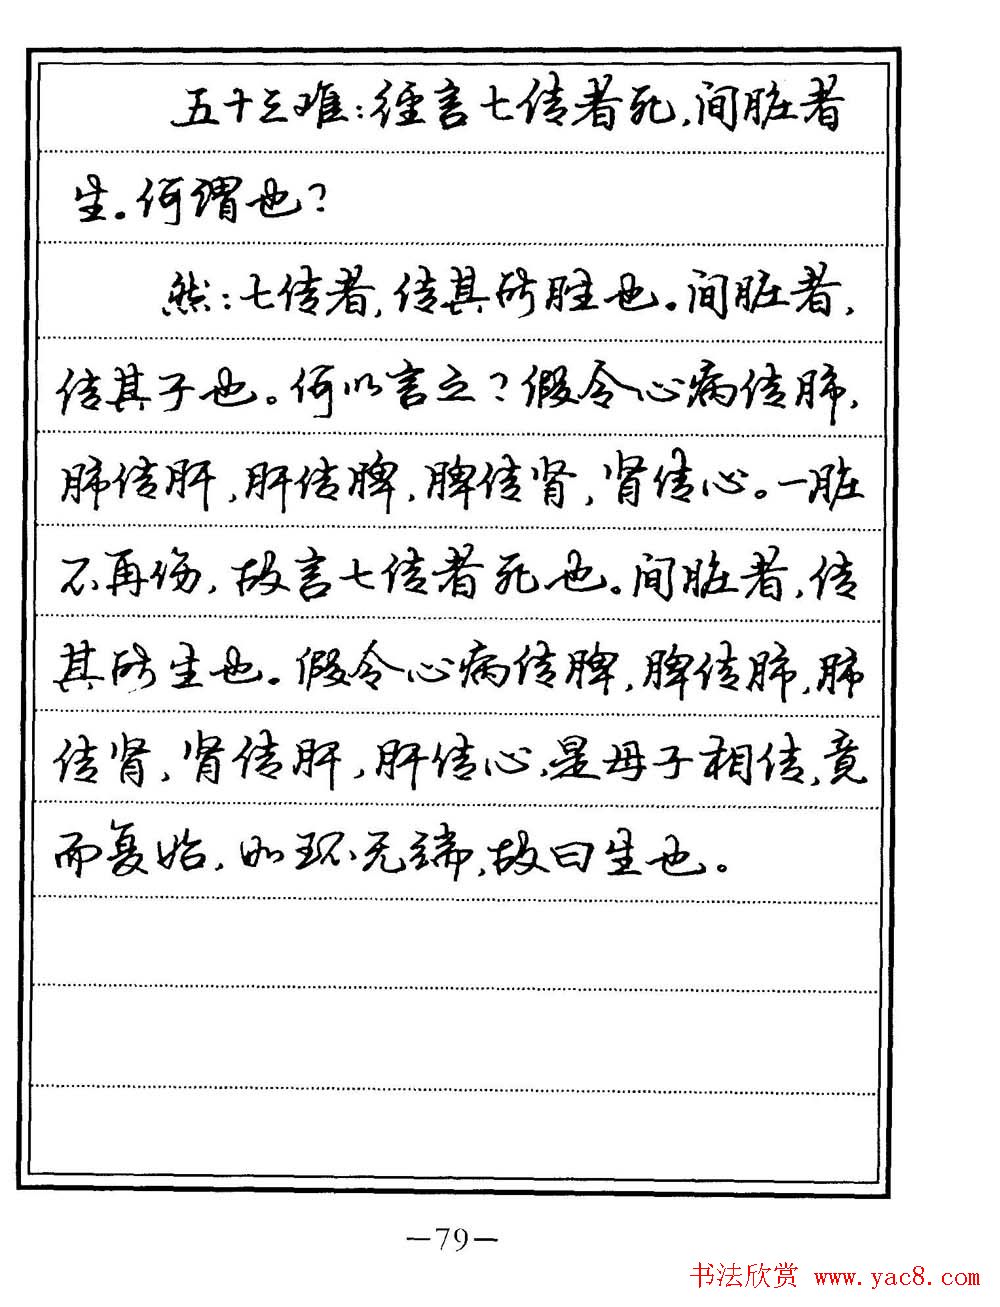 五十三难：经言七传者死，间脏者
生。何谓也？
然：七传者，传其所胜也。间脏者，
传其子也。何以言之？假令心病传肺，
肺传肝，肝传脾，脾传肾，肾传心。一脏
不再伤，故言七传者死也。间脏者，传
其所生也。假令心病传脾，脾传肺，肺
传肾，肾传肝，肝传心，是母子相传，竟
而复始，如环无端，故曰生也。
—79—
书法欣赏 www.yac8.com